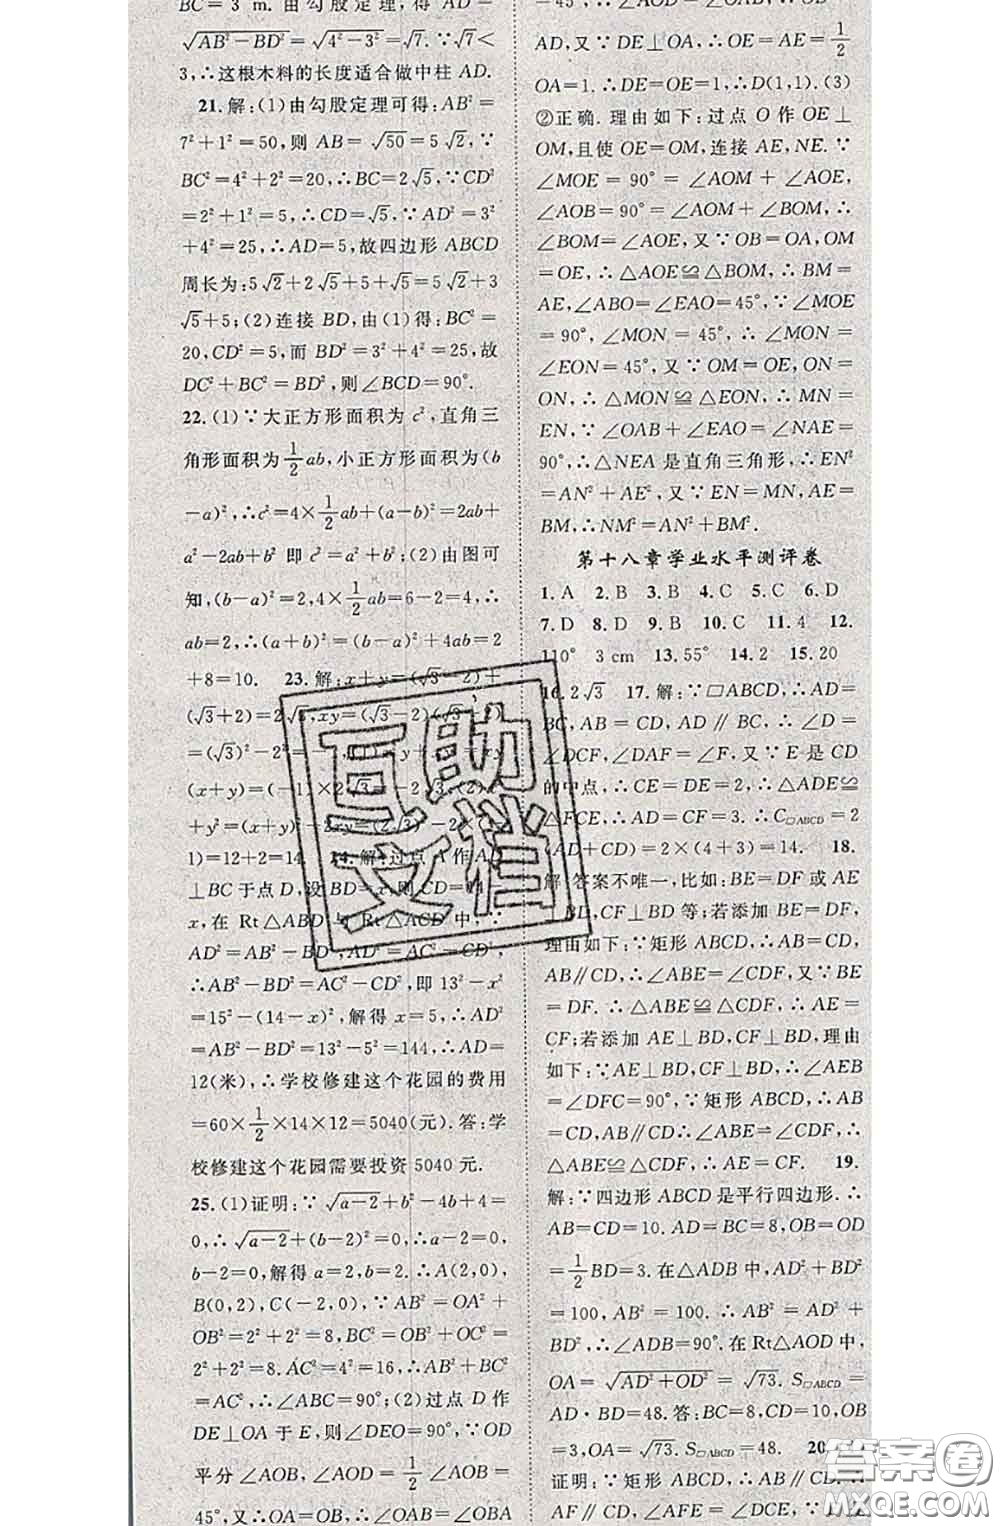 BC=3 m. 由勾股定理,得 AD=
√(AB²-BD²)=√(4²-3²)=√7.∵√7<
3,∴这根木料的长度适合做中柱 AD.
21.解:(1)由勾股定理可得:AB²=
7²+1²=50,则 AB=√50=5√2,∵
BC²=4²+2²=20,∴BC=2√5,∵CD²
=2²+1²=5,∴CD=√5,∵AD²=3²
+4²=25,∴AD=5,故四边形 ABCD
周长为:5√2+2√5+5+√5=5√2+
3√5+5;(2)连接 BD,由(1)得:BC²=
20,CD²=5,而 BD²=3²+4²=25,故
DC²+BC²=BD²,则∠BCD=90°.
22.(1)∵大正方形面积为 c²,直角三
角形面积为1/2ab,小正方形面积为(b
-a)²,∴c²=4×1/2ab+(a-b)²=2ab+
a²-2ab+b² 即 c²=a²+b²;(2)由图可
知,(b-a)²=2,4×1/2ab=6-2=4,∴
ab=2,∴(a+b)²=(b-a)²+4ab=2
+8=10. 23.解:x+y=(√3-2)+
(√3+2)=2√3,xy=(√3-2)(√3+2)
=(√3)²-2²=-1,
(x+y)=(-1)×2√3=-2√3,(2)x²
+y²=(x+y)²-2xy=(2√3)²-2×(-
1)=12+2=14. 24.解:过点 A 作 AD
⊥BC 于点 D,设 BD=x,则 CD=14-
x,在 Rt△ABD 与 Rt△ACD 中,∵
AD²=AB²-BD²,AD²=AC²-CD²,
∴AB²-BD²=AC²-CD²,即 13²-x²
=15²-(14-x)²,解得 x=5,∴AD²=
AB²-BD²=13²-5²=144,∴AD=
12(米),∴学校修建这个花园的费用
=60×1/2×14×12=5040(元).答:学
校修建这个花园需要投资 5040 元.
25.(1)证明:∵√(a-2)+b²-4b+4=
0,∴√(a-2)+(b-2)²=0,∴a-2=0,
b-2=0,解得 a=2,b=2.∴A(2,0),
B(0,2),C(-2,0).∵AB²=OA²+
OB²=2²+2²=8,BC²=OB²+OC²=
2²+2²=8.AC²=4²=16,∴AB²+BC²
=AC²,∴∠ABC=90°;(2)过点 D 作
DE⊥OA 于 E,则∠DEO=90°,∵OD
平分∠AOB,∴∠AOD=1/2∠AOB=
45°,又∵OA=OB,∴∠OAB=∠OBA
=45°,
AD,又∵DE⊥OA,∴OE=AE=1/2
OA=1.∴DE=OE=1,∴D(1,1).(3)
②正确.理由如下:过点 O 作 OE⊥
OM,且使 OE=OM,连接 AE,NE.∵
∠MOE=90°=∠AOM+∠AOE,
∠AOB=90°=∠AOM+∠BOM,∴
∠BOM=∠AOE,又∵OB=OA,OM
=OE,∴△AOE≌△BOM,∴BM=
AE,∠ABO=∠EAO=45°,∵∠MOE
=90°,∠MON=45°,∴∠MON=
∠EON=45°,又∵OM=OE,ON=
ON,∴△MON≌△EON,∴MN=
EN,∵∠OAB+∠EAO=∠NAE=
90°,∴△NEA 是直角三角形,∴EN²
=AN²+AE²,又∵EN=MN,AE=
BM,∴NM²=AN²+BM².
第十八章学业水平测评卷
1.A 2.B 3.B 4.C 5.C 6.D
7.D 8.D 9.B 10.C 11.4 12.
110° 3 cm 13.55° 14.2 15.20
16.2√3 17.解:∵□ABCD,∴AD=
BC,AB=CD,AD∥BC,∴∠D=
∠DCF,∠DAF=∠F,又∵E 是 CD
的中点,∴CE=DE=2,∴△ADE≌
△FCE,∴AD=CF=3.∴C□ABCD=2
(AD+CD)=2×(4+3)=14. 18.
解:答案不唯一,比如:BE=DF 或 AE
⊥BD,CF⊥BD 等;若添加 BE=DF,
理由如下:∵矩形 ABCD,∴AB=CD,
AB∥CD,∴∠ABE=∠CDF,又∵BE
=DF.∴△ABE≌△CDF,∴AE=
CF;若添加 AE⊥BD,CF⊥BD,理由
如下:∵AE⊥BD,CF⊥BD,∴∠AEB
=∠DFC=90°,∵矩形 ABCD,∴AB=
CD,AB∥CD∴∠ABE=∠CDF,∴
△ABE≌△CDF,∴AE=CF. 19.
解:∵四边形 ABCD 是平行四边形.∴
AB=CD=10.AD=BC=8,OB=OD
=1/2BD=3.在△ADB 中,AD²+BD²
=100,AB²=100.∴AB²=AD²+
BD²,∴∠ADB=90°.在 Rt△AOD 中,
OA=√(AD²+OD²)=√73.S□ABCD=
AD·BD=48.答:BC=8,CD=10,OB
=3,OA=√73.S□ABCD=48. 20.
证明:∵矩形 ABCD,∴AB∥CD.∴
AF∥CD,∴∠AFE=∠DCE,又∵
互助
文档
答案卷
MXQE.COM